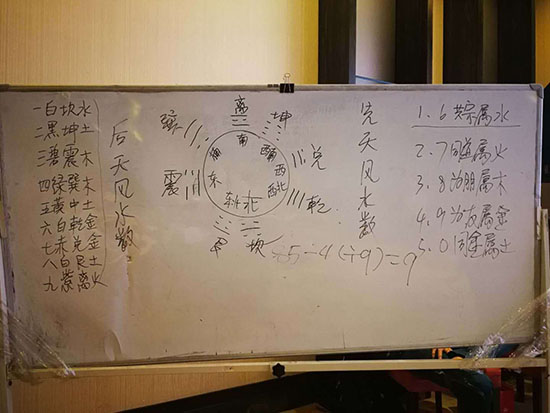 一白坎水
二黑坤土
三碧震木
四绿巽木
五黄中土
六白乾金
七赤兑金
八白艮土
九紫离火
后天风水数
离
坤
兑
乾
坎
艮
震
巽
南
西南
西
西北
北
东北
东
先天风水数
1.6共宗属水
2.7同道属火
3.8为朋属木
4.9为友属金
5.0同途属土
÷5-4(÷9)=9